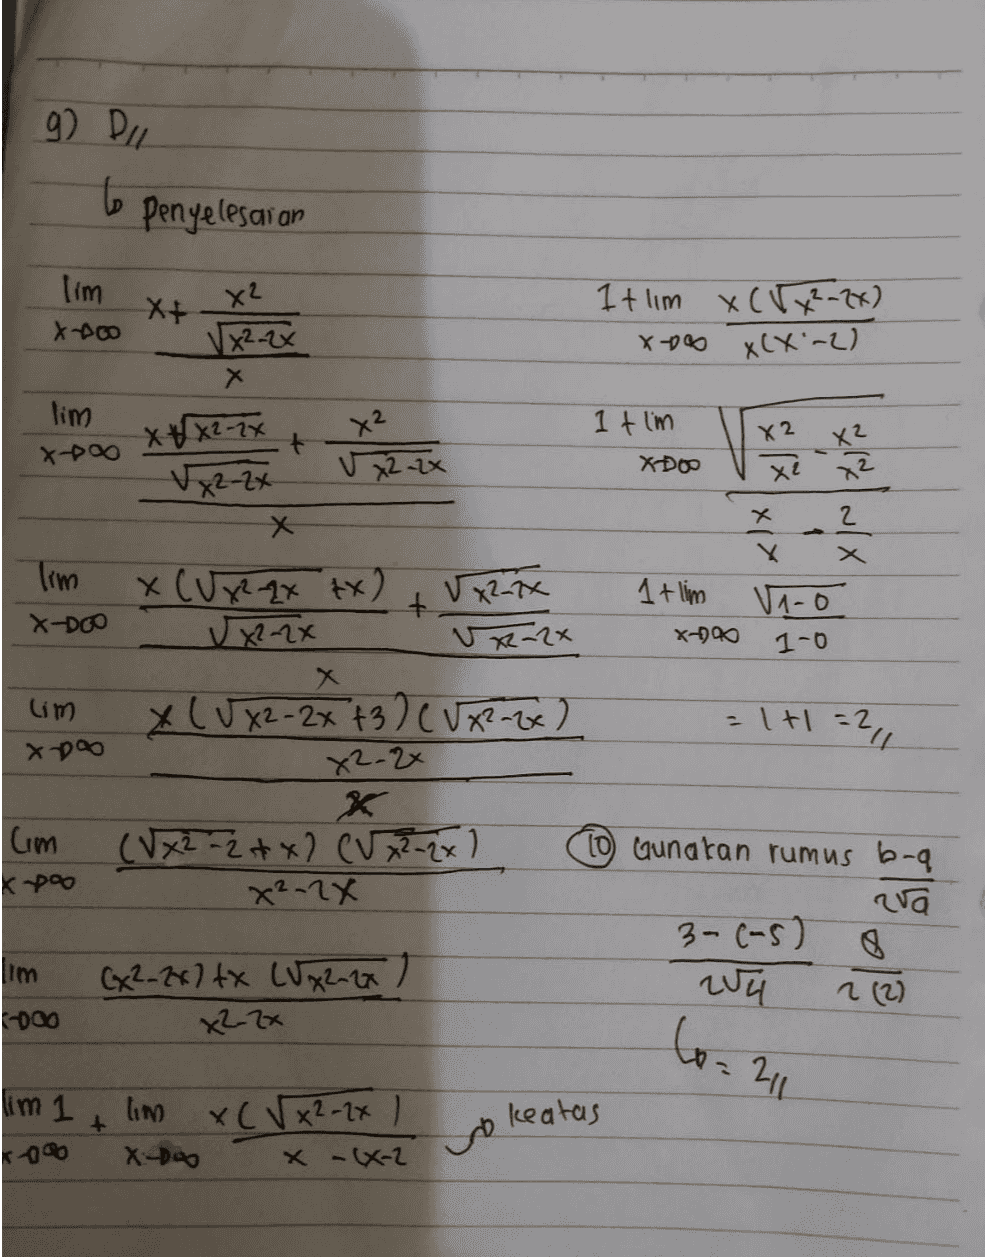 9) D//
↳ Penyelesaian
lim x→∞ (x + x²/√(x²-2x)) / x
lim x→∞ (x√(x²-2x)/√(x²-2x) + x²/√(x²-2x)) / x
lim x→∞ (x(√(x²-2x) + x)/√(x²-2x) + √(x²-2x)/√(x²-2x)) / x
lim x→∞ (x(√(x²-2x) + 3)(√(x²-2x)) / (x²-2x)) / x
lim x→∞ (√(x²-2) + x)(√(x²-2x)) / (x²-2x)
lim x→∞ ((x²-2x) + x(√(x²-2x))) / (x²-2x)
lim 1 x→∞ + lim x→∞ x(√(x²-2x)) / x-(x-2 → keatas
1 + lim x→∞ x(√(x²-2x)) / x(x-2)
1 + lim x→∞ √(x²/x² - x²/x²) / (x/x - 2/x)
1 + lim x→∞ √(1-0) / (1-0)
= 1+1 = 2//
(10) Gunakan rumus (b-q)/(2√a)
(3-(-5))/(2√4) 8/(2(2))
↳ = 2//